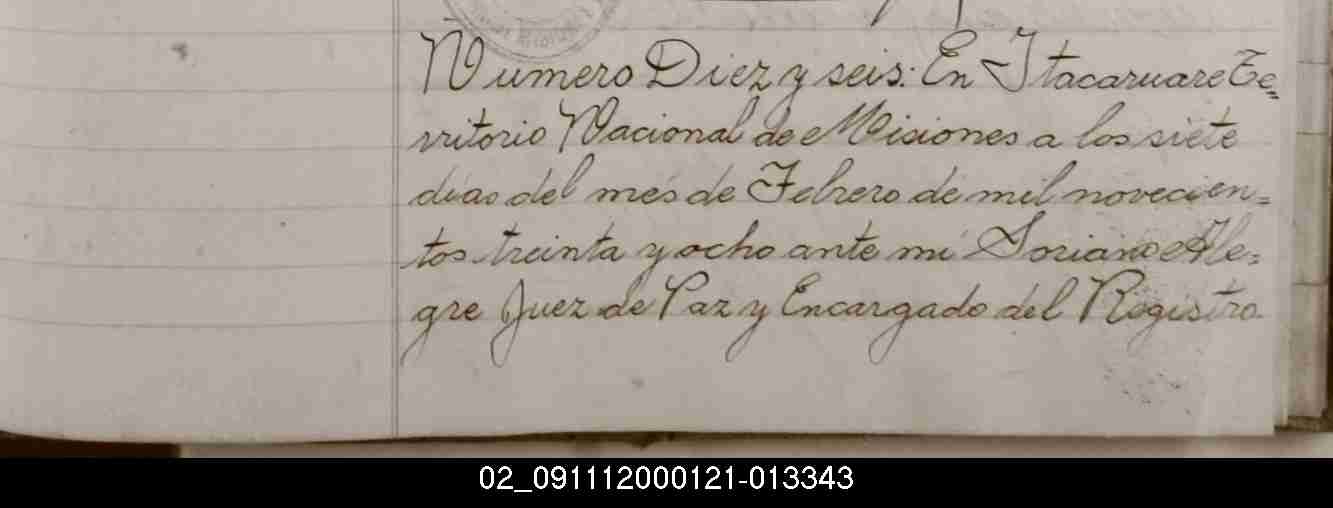 Numero Diez y seis: En Itacaruare Te=
rritorio Nacional de Misiones a los siete
dias del mes de Febrero de mil novecien=
tos treinta y ocho ante mi Soriano Ale=
gre Juez de Paz y Encargado del Registro
02_091112000121-013343